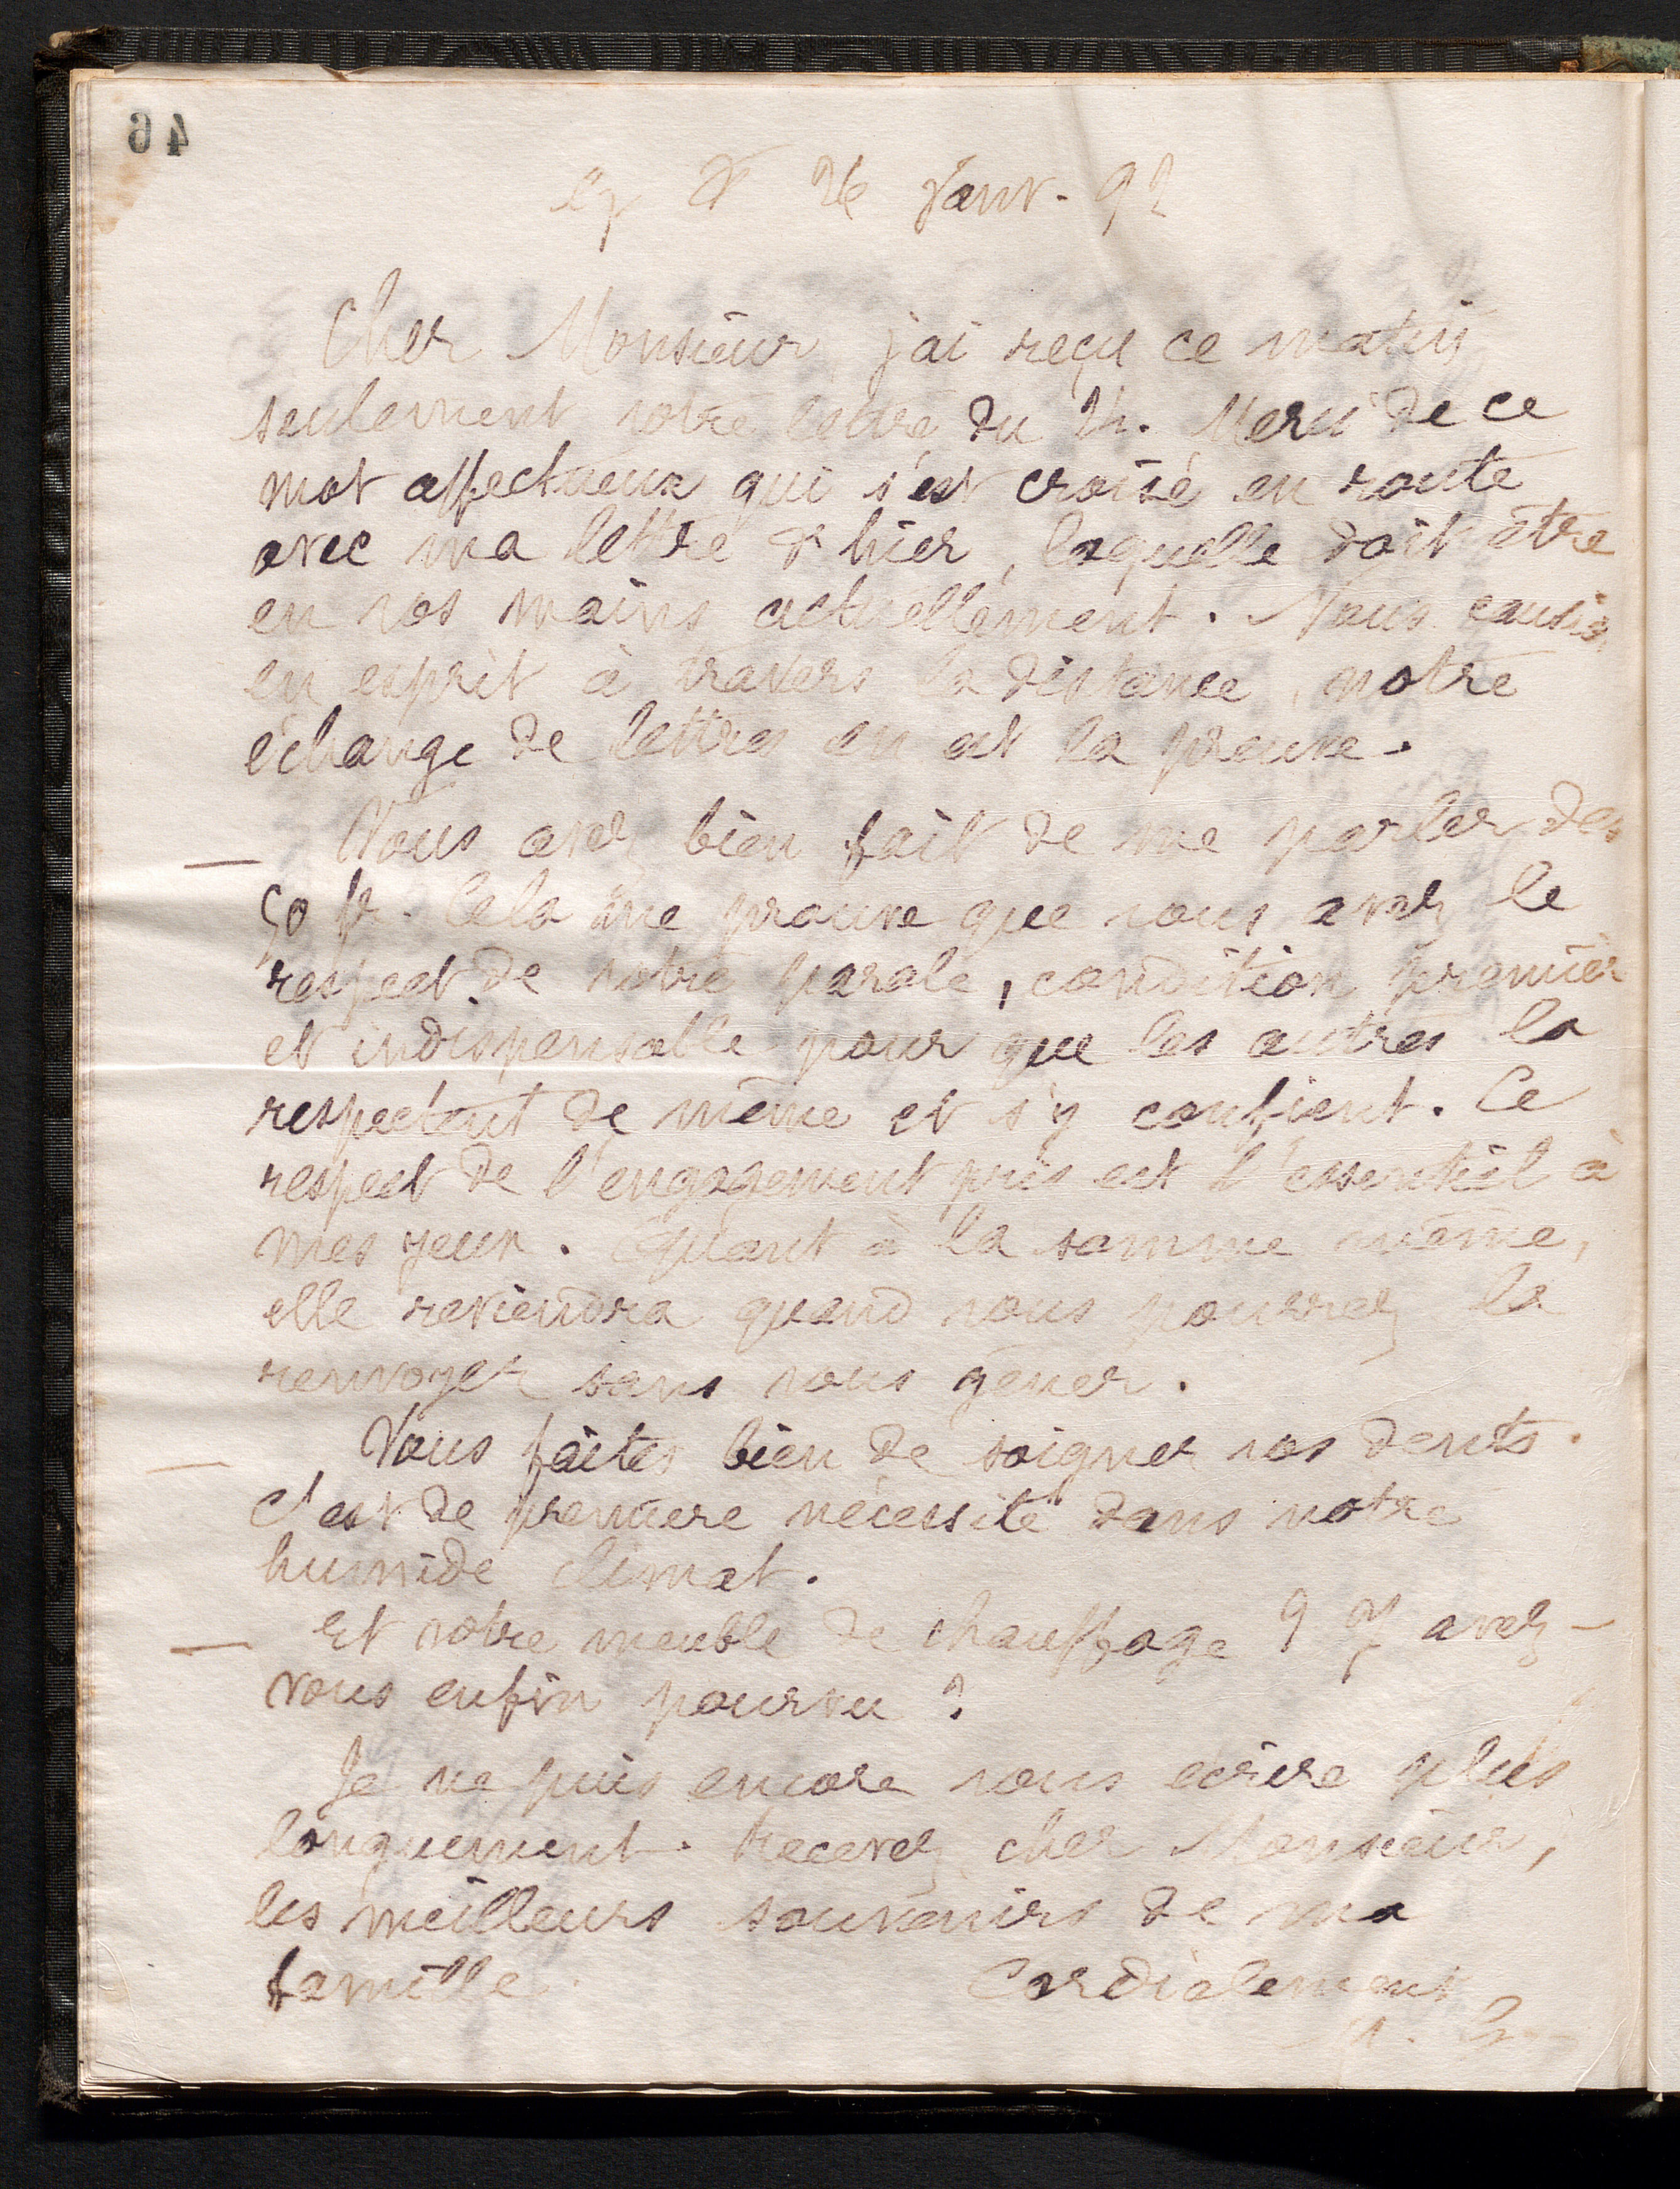 46
26 Janv. 92
Cher Monsieur, j'ai reçu ce matin
seulement votre lettre du 24. Merci de ce
mot affectueux qui s'est croisé en route
avec ma lettre d'hier, laquelle doit être
en vos mains actuellement. Nous causions
en esprit à travers la distance, notre
échange de lettres en est la preuve.
— Vous avez bien fait de me parler des
50 fr. Cela me prouve que vous avez le
respect de votre parole, condition première
et indispensable pour que les autres la
respectent de même et s'y confient. Ce
respect de l'engagement pris est l'essentiel à
mes yeux. Quant à la somme même,
elle reviendra quand vous pourrez la
renvoyer sans vous gêner.
— Vous faites bien de soigner vos dents.
C'est de première nécessité dans notre
humide climat.
— Et votre meuble de chauffage ? Y avez-
vous enfin pourvu ?
Je ne puis encore vous écrire plus
longuement. Recevez, cher Monsieur,
les meilleurs souvenirs de ma
famille. Cordialement